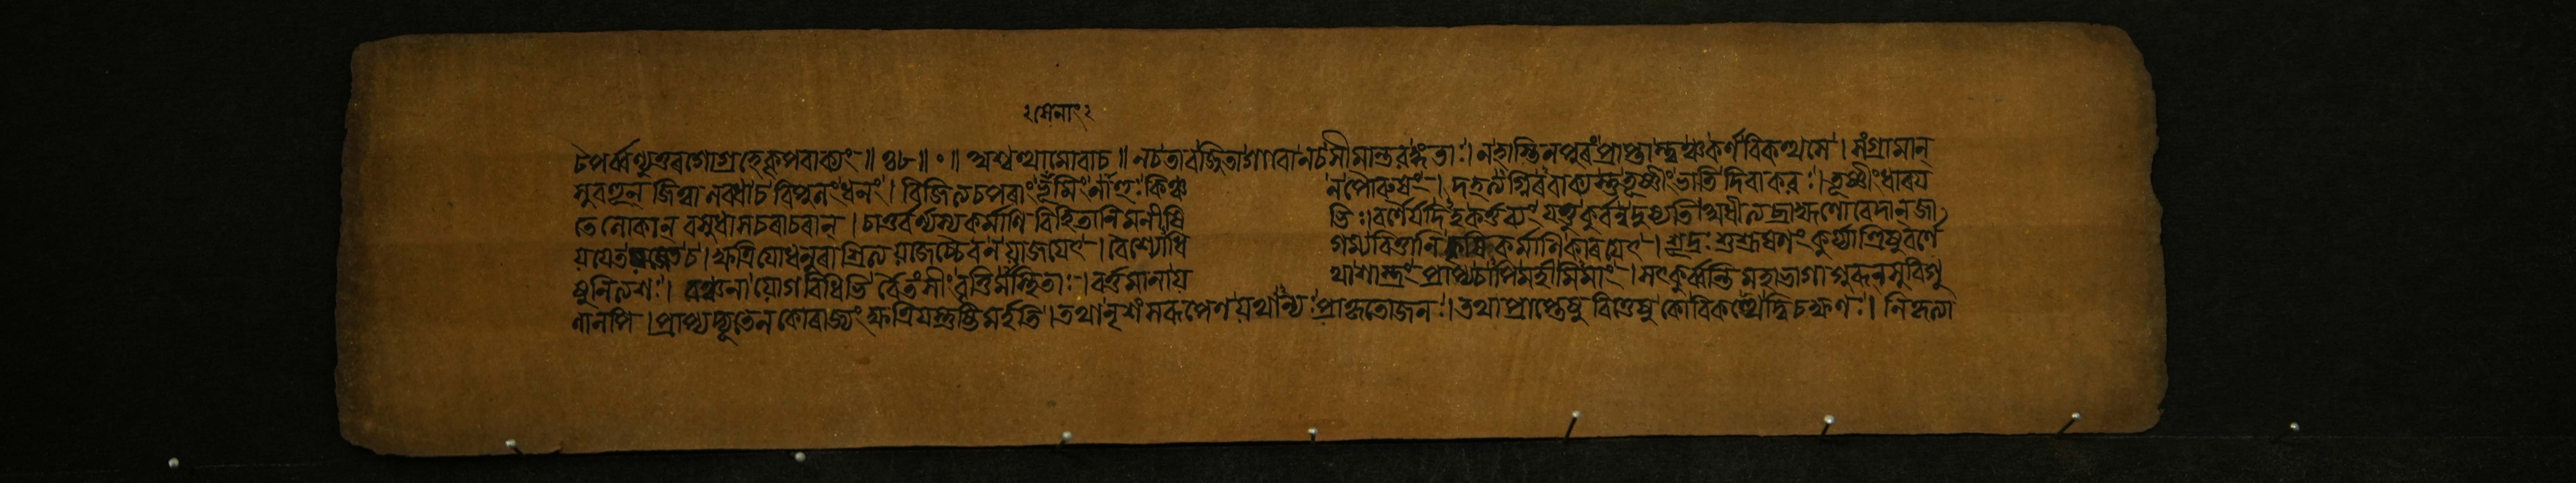 ঃসেনাংঃ
টপর্ব্বণ্যুত্তৰগোগ্রহেকৃপবাক্যং॥ ৪৮॥ ০॥ অশ্বত্থামোবাচ॥ নচতাবজ্জিতাগাবোনচসীমান্তৰঙ্গতাঃ। নহাস্তিনপুৰংপ্রাপ্তাস্ত্বঞ্চকর্ণবিকত্থসে। সংগ্রামান্
সুবহূন্ জিত্বা লব্ধ্বাচ বিপুলংধনং। বিজিত্যচপৰাংভূমিংনাহুঃকিঞ্চ নপৌরুষং। দহত্যগ্নিৰবাক্যস্তুতূষ্ণীংভাতি দিবাকৰঃ। তূষ্ণীংধাৰয
তেলোকান্ বসুধাসচৰাচৰান্। চাতুর্বর্ণ্যস্যকর্মাণি বিহিতানিমনীষি ভিঃ। ধনংযৈৰধিগন্তব্যং যচ্চকুর্বন্নদুষ্যতি অধীত্যব্রাহ্মণোবেদান্জা
যযেতযজেতচ। ক্ষত্রিযোধনুৰাশ্রিত্যযজেচ্চৈবনযাজযেৎ। বৈশ্যোধি গম্যবিত্তানি কর্মাণিকাৰযেৎ। শূদ্রঃশুশ্রূষণংকুর্য্যাত্ত্রিষুবর্ণে
ষুনিত্যশঃ। বঞ্চনাযোগবিধিভি র্বৈতসীংবৃত্তিমাস্থিতাঃ। বর্ত্তমানায থাশাস্ত্রং প্রাপ্যচাপিমহীমিমাং। সৎকুর্ব্বন্তিমহাভাগাগুৰূন্সুবিগু
ণানপি। প্রাপ্যদ্যূতেনকোৰাজ্যং ক্ষত্রিযস্তোষ্টুমর্হতি। তথানৃশংসৰূপেণযথান্যঃ প্রাকৃতোজনঃ। তথাপ্রাপ্তেষুবিত্তেষুকোবিকত্থেদ্বিচক্ষণঃ। নিকৃত্যা